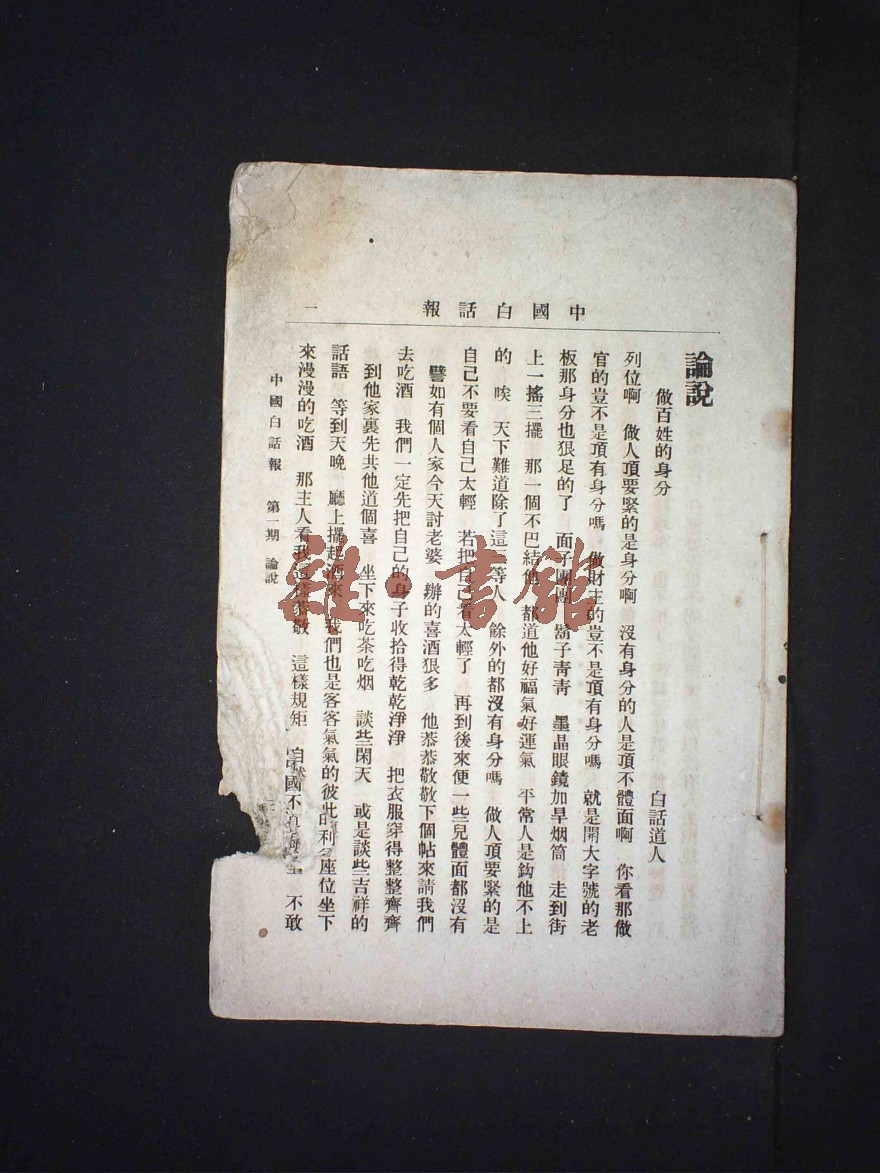 中國白話報
一
論說
做百姓的身分
白話道人
列位啊　做人頂要緊的是身分啊　沒有身分的人是頂不體面啊　你看那做
官的豈不是頂有身分嗎　做財主的豈不是頂有身分嗎　就是開大字號的老
板那身分也狠足的了　面子團團　鬍子青青　墨晶眼鏡加旱烟筒　走到街
上一搖三擺　那一個不巴結他　都道他好福氣好運氣　平常人是鈎他不上
的　唉　天下難道除了這三等人　餘外的都沒有身分嗎　做人頂要緊的是
自己不要看自己太輕　若把自己看太輕了　再到後來便一些兒體面都沒有
譬如有個人家今天討老婆　辦的喜酒狠多　他恭恭敬敬下個帖來請我們
去吃酒　我們一定先把自己的身子收拾得乾乾淨淨　把衣服穿得整整齊齊
到他家裏先共他道個喜　坐下來吃茶吃烟　談些閑天　或是談些吉祥的
話語　等到天晚　廳上擺起酒來　我們也是客客氣氣的彼此座位坐下
來漫漫的吃酒　那主人看我這樣恭敬　這樣規矩　不敢
中國白話報　第一期　論說
雜·書館